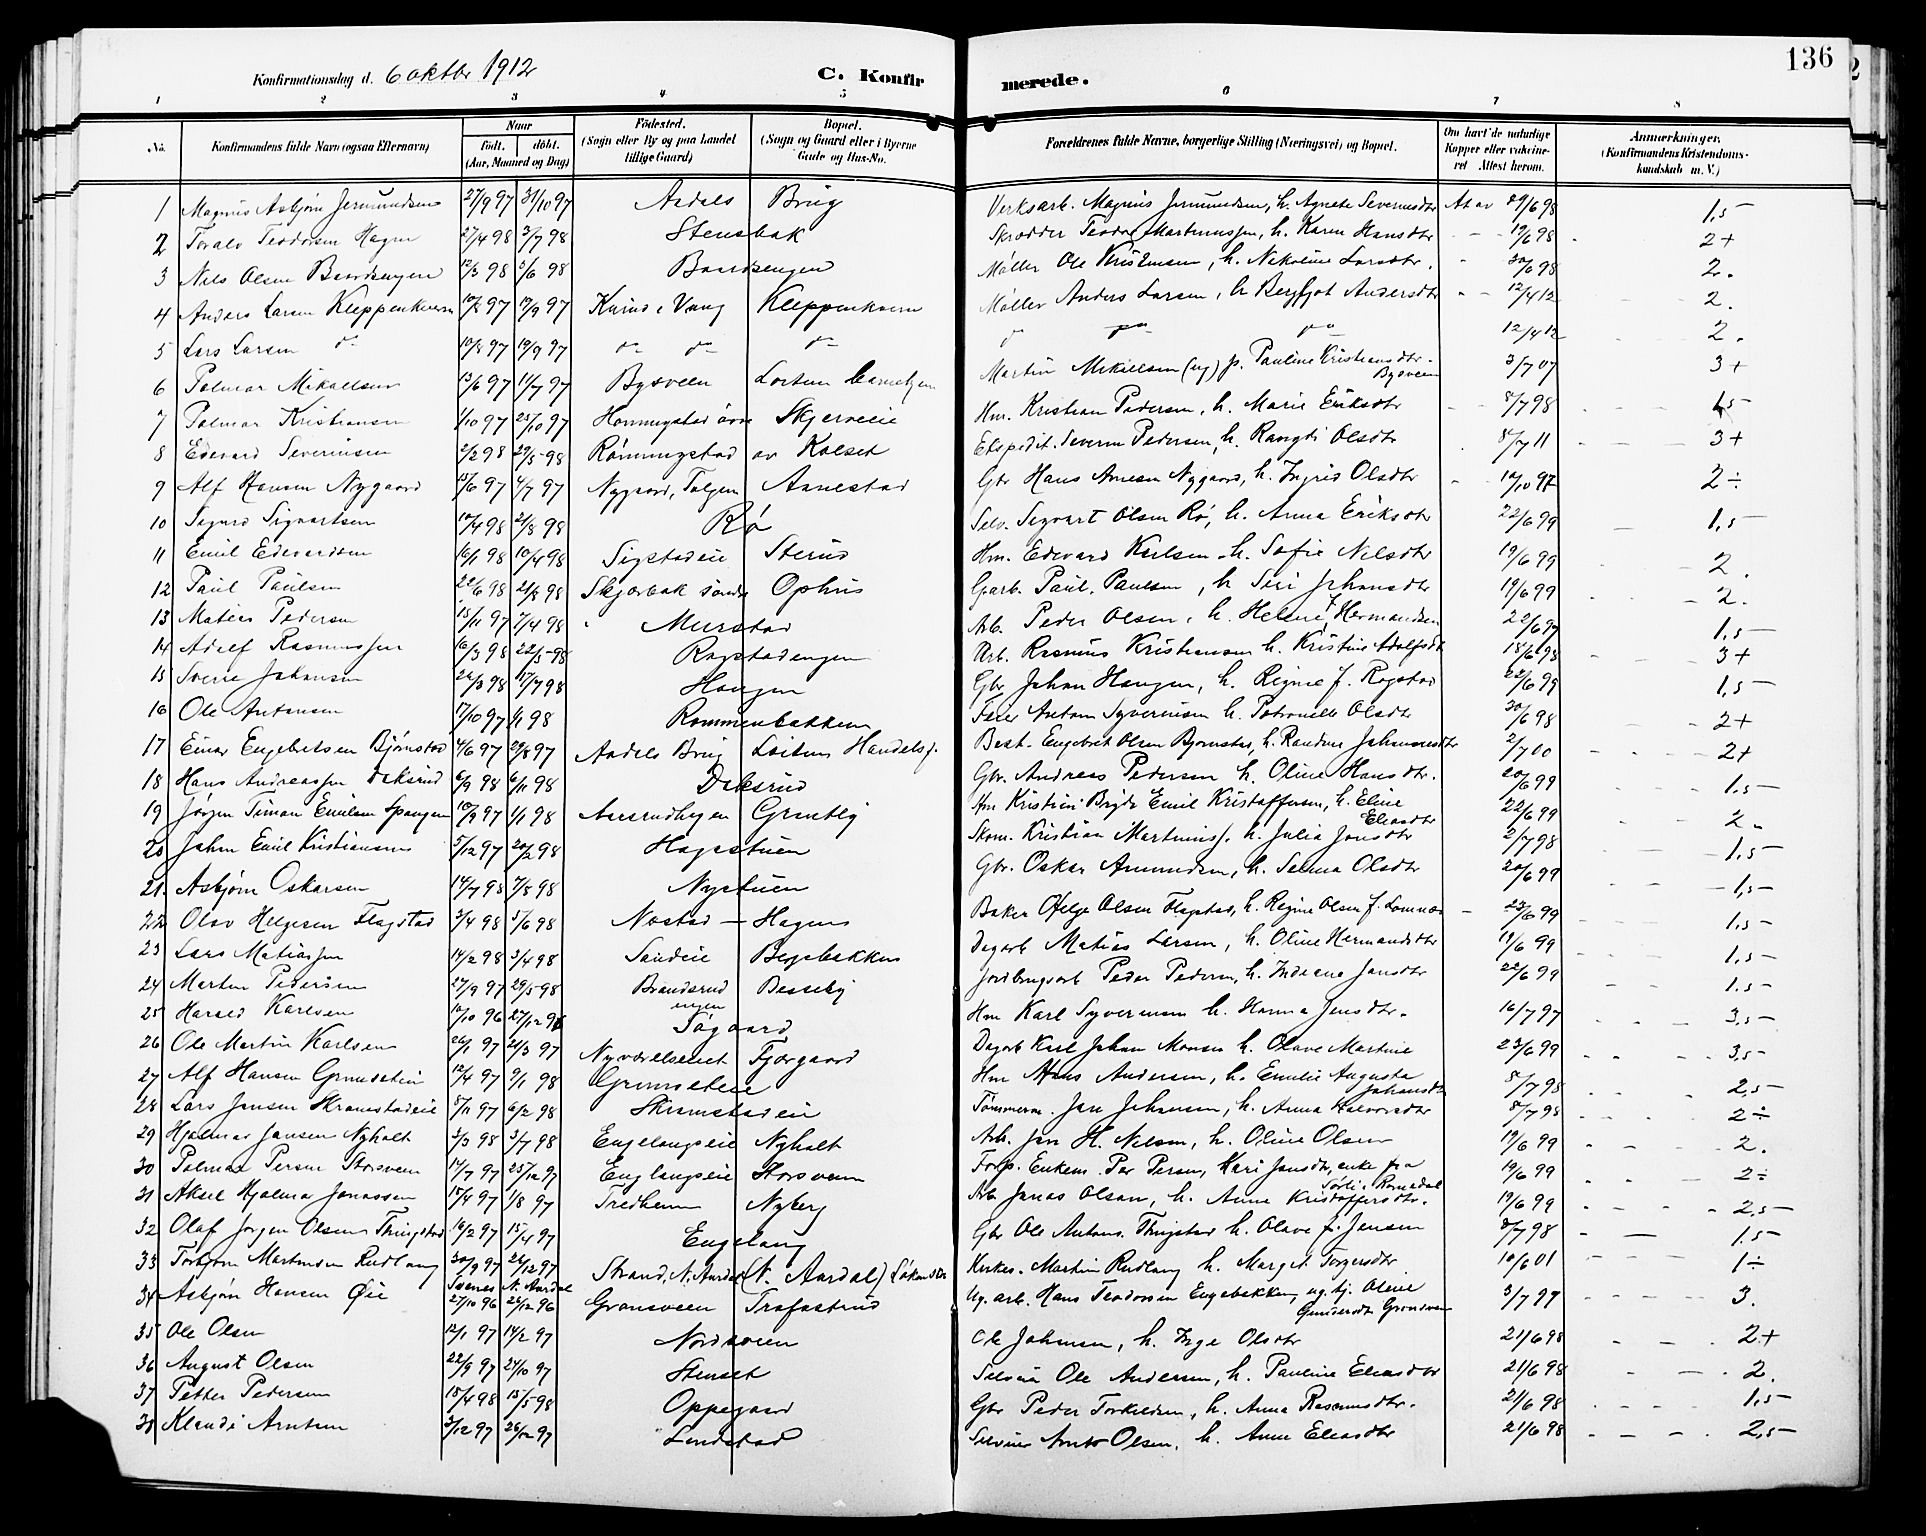 136
Konfirmationsdag d. 6 oktbr 1912
C. Konfirmerede.
1 2 3 4 5 6 7 8
No. Konfirmandens fulde Navn (ogsaa Efternavn) Naar født. døbt. (Aar, Maaned og Dag) Fødested. (Sogn eller By og paa Landet tillige Gaard) Bopæl. (Sogn og Gaard eller i Byerne Gade og Hus-No. Forældrenes fulde Navne, borgerlige Stilling (Næringsvei) og Bopæl. Om havt de naturlige Kopper eller vakcineret Attest herom. Anmærkninger. (Konfirmandens Kristendomskundskab m. V.)
1 Magnus Asbjørn Jermundsen 27/9 97 31/10 97 Aadals Brug Verksarb. Magnus Jermundsen, h. Agnete Severinsdtr At av 29/6 98 1,5
2 Toralv Teodorsen Hagen 27/4 98 3/7 98 Stensbak Skrædder Teodor Martinussen, h. Karen Hansdtr 19/6 98 2+
3 Nils Olsen Baardsengen 12/3 98 5/6 98 Baardsengen Møller Ole Kristensen, h. Nikoline Larsdtr. 30/6 98 2.
4 Anders Larsen Kleppenkvern 10/8 97 19/9 97 Kurud i Vang Kleppenkvern Møller Anders Larsen, h Bergljot Andersdtr 12/4 12 2.
5 Lars Larsen do 10/8 97 19/9 97 do do do do do do 12/4 12 2.
6 Palmar Mikaelsen 13/6 97 11/7 97 Bysveen Martin Mikaelsen (ug) p. Pauline Kristiansdtr. Bysveen 3/7 07 3+
7 Palmar Kristiansen 1/10 97 25/10 97 Hommerstad øvre Skjerveeie Hm. Kristian Pedersen, h. Marie Eriksdtr 8/7 98 1,5
8 Edevard Severinsen 2/2 98 29/5 98 Rømmugstad av Kolset Ekspedit. Severin Pedersen, h. Rangdi Olsdtr 8/7 11 3+
9 Alf Hansen Nygaard 13/6 97 4/7 97 Nygaard, Tolgen Aanestad Gbr Hans Arnesen Nygaard, h. Ingrid Olsdtr 10/10 97 2÷
10 Sigurd Sigvartsen 10/4 98 21/8 98 Rø Selv. Sigvart Olsen Rø, h. Anna Eriksdtr 22/6 99 1,5
11 Emil Edevardsen 16/1 98 10/4 98 Sigstadeie Sterud Hm. Edevard Karlsen h. Sofie Nilsdtr 19/6 99 2
12 Paul Paulsen 22/6 98 21/8 98 Skjærbak søndre Ophus Garb. Paul Paulsen, h Siri Johansdtr 19/6 99 2.
13 Matias Pedersen 15/11 97 7/4 98 Murstad Arb. Peder Olsen, h. Helene f. Hermandsen 22/6 97 1,5
14 Adolf Rasmussen 16/3 98 22/5 98 Rogstadengen Arb. Rasmus Kristiansen h. Kristine Adolfsdtr 18/6 98 3+
15 Sverre Johansen 24/3 98 17/7 98 Haugen Gbr Johan Haugen, h. Regine f. Rogstad 22/6 99 1,5
16 Ole Antonsen 17/10 97 1/1 98 Rommenbakken Feier Anton Syversen h. Petronelle Olsdtr 20/6 98 2+
17 Einar Engebretsen Bjørnstad 4/6 97 29/8 97 Aadals Brug Løitens Handelsf. Best. Engebret Olsen Bjørnstad, h. Randine Johannesdtr 2/7 00 2+
18 Hans Andreassen Daksrud 6/9 98 6/11 98 Daksrud Gbr. Andreas Pedersen h. Oline Hansdtr. 20/6 99 1.5
19 Jørgen Timan Emilsen Spangen 10/9 97 1/1 98 Aaserudhagen Grøntlig Hm Kristian Bryde Emil Kristoffersen, h. Eline Eliasdtr 22/6 99 2.
20 Johan Emil Kristiansen 5/12 97 20/2 98 Hagestuen Skom. Kristian Martinusf. h. Julia Jonsdtr 2/7 98 1,5
21. Asbjørn Oskarsen 14/7 98 7/8 98 Nystuen Gbr. Oskar Amundsen, h. Selma Olsdtr 20/6 99 1,5
22 Olav Helgesen Flagstad 3/4 98 5/6 98 Næstad Hagen Baker Helge Olsen Flagstad, h. Regine Olsen f. Lomnæs 23/6 99 1.5
23 Lars Matiassen 14/2 98 3/4 98 Sandeie Begebakken Dagarb Matias Larsen, h. Oline Hermandsdtr 19/6 99 1.5
24 Martin Pedersen 27/9 97 29/5 98 Brandsrud engen Besseby Jordbrugsarb Peder Pedersen, h. Indiane Jonsdtr 22/6 99 1.5
25 Harald Karlsen 10/10 96 27/12 96 Søgaard Hm Karl Syversen h. Hanna Jensdtr. 16/7 97 3,5
26 Ole Martin Karlsen 26/1 97 21/3 97 Nyværelseiet Fjærgaard Dagarb Karl Johan Monsen h. Olave Martine 23/6 99 3,5
27 Alf Hansen Grimseteie 12/4 97 9/1 98 Grimseteie Hm Hans Andersen, h. Emilie Augusta Johansdtr 8/7 98 2,5
28 Lars Jensen Skramstadeie 8/11 97 6/2 98 Skramstadeie Tømmerm. Jens Johansen, h. Anna Halvorsdtr 8/7 98 2÷
29 Hjalmar Jansen Nyholt 3/3 98 3/7 98 Engelangseie Nyholt Arb. Jan H. Nilsen, h. Oline Olsen 19/6 99 2.
30 Palmar Persen Storsveen 14/7 97 25/12 97 Englangseie Storsveen Forp. Enkem. Per Persen, Kari Jonsdtr, enke fra Romedal 19/6 99 2÷
31 Aksel Hjalmar Jonassen 15/4 97 1/8 97 Tredhem Nyberg Arb Jonas Olsen, h. Anne Kristoffersdtr. 19/6 99 2,5
32 Olaf Jørgen Olsen Thingstad 16/2 97 15/4 97 Engelang Gbr Ole Antons. Thingstad h. Olave f. Jensen 8/7 98 1.5
33 Torbjørn Martinsen Rudlang 30/9 97 26/12 97 Strand, N. Aurdal (N. Aurdal) Kirkes. Martin Rudlang h. Margit Torgersdtr 10/6 01 1÷
34 Asbjørn Hansen Øie 27/10 96 26/12 96 Grønsveen Trafastrud Ug. arb. Hans Teodorsen Engebakken, ug. tj. Oline Gundersdtr Grønsveen 3/7 97 3.
35 Ole Olsen 12/1 97 14/2 97 Nordsveen Ole Johnsen, h. Inge Olsdtr 21/6 98 2+
36 August Olsen 22/9 97 24/10 97 Stenset Selveier Ole Andersen, h. Pauline Eliasdtr 21/6 98 2.
37 Petter Pedersen 15/4 98 15/5 98 Oppegaard Gbr Peder Torkildsen, h. Anna Rasmusdtr. 21/6 98 1,5
38 Klaudi Arntsen 3/12 97 26/12 97 Lindstad Selveier Arnt Olsen, h. Anne Eliasdtr 21/6 98 2,5